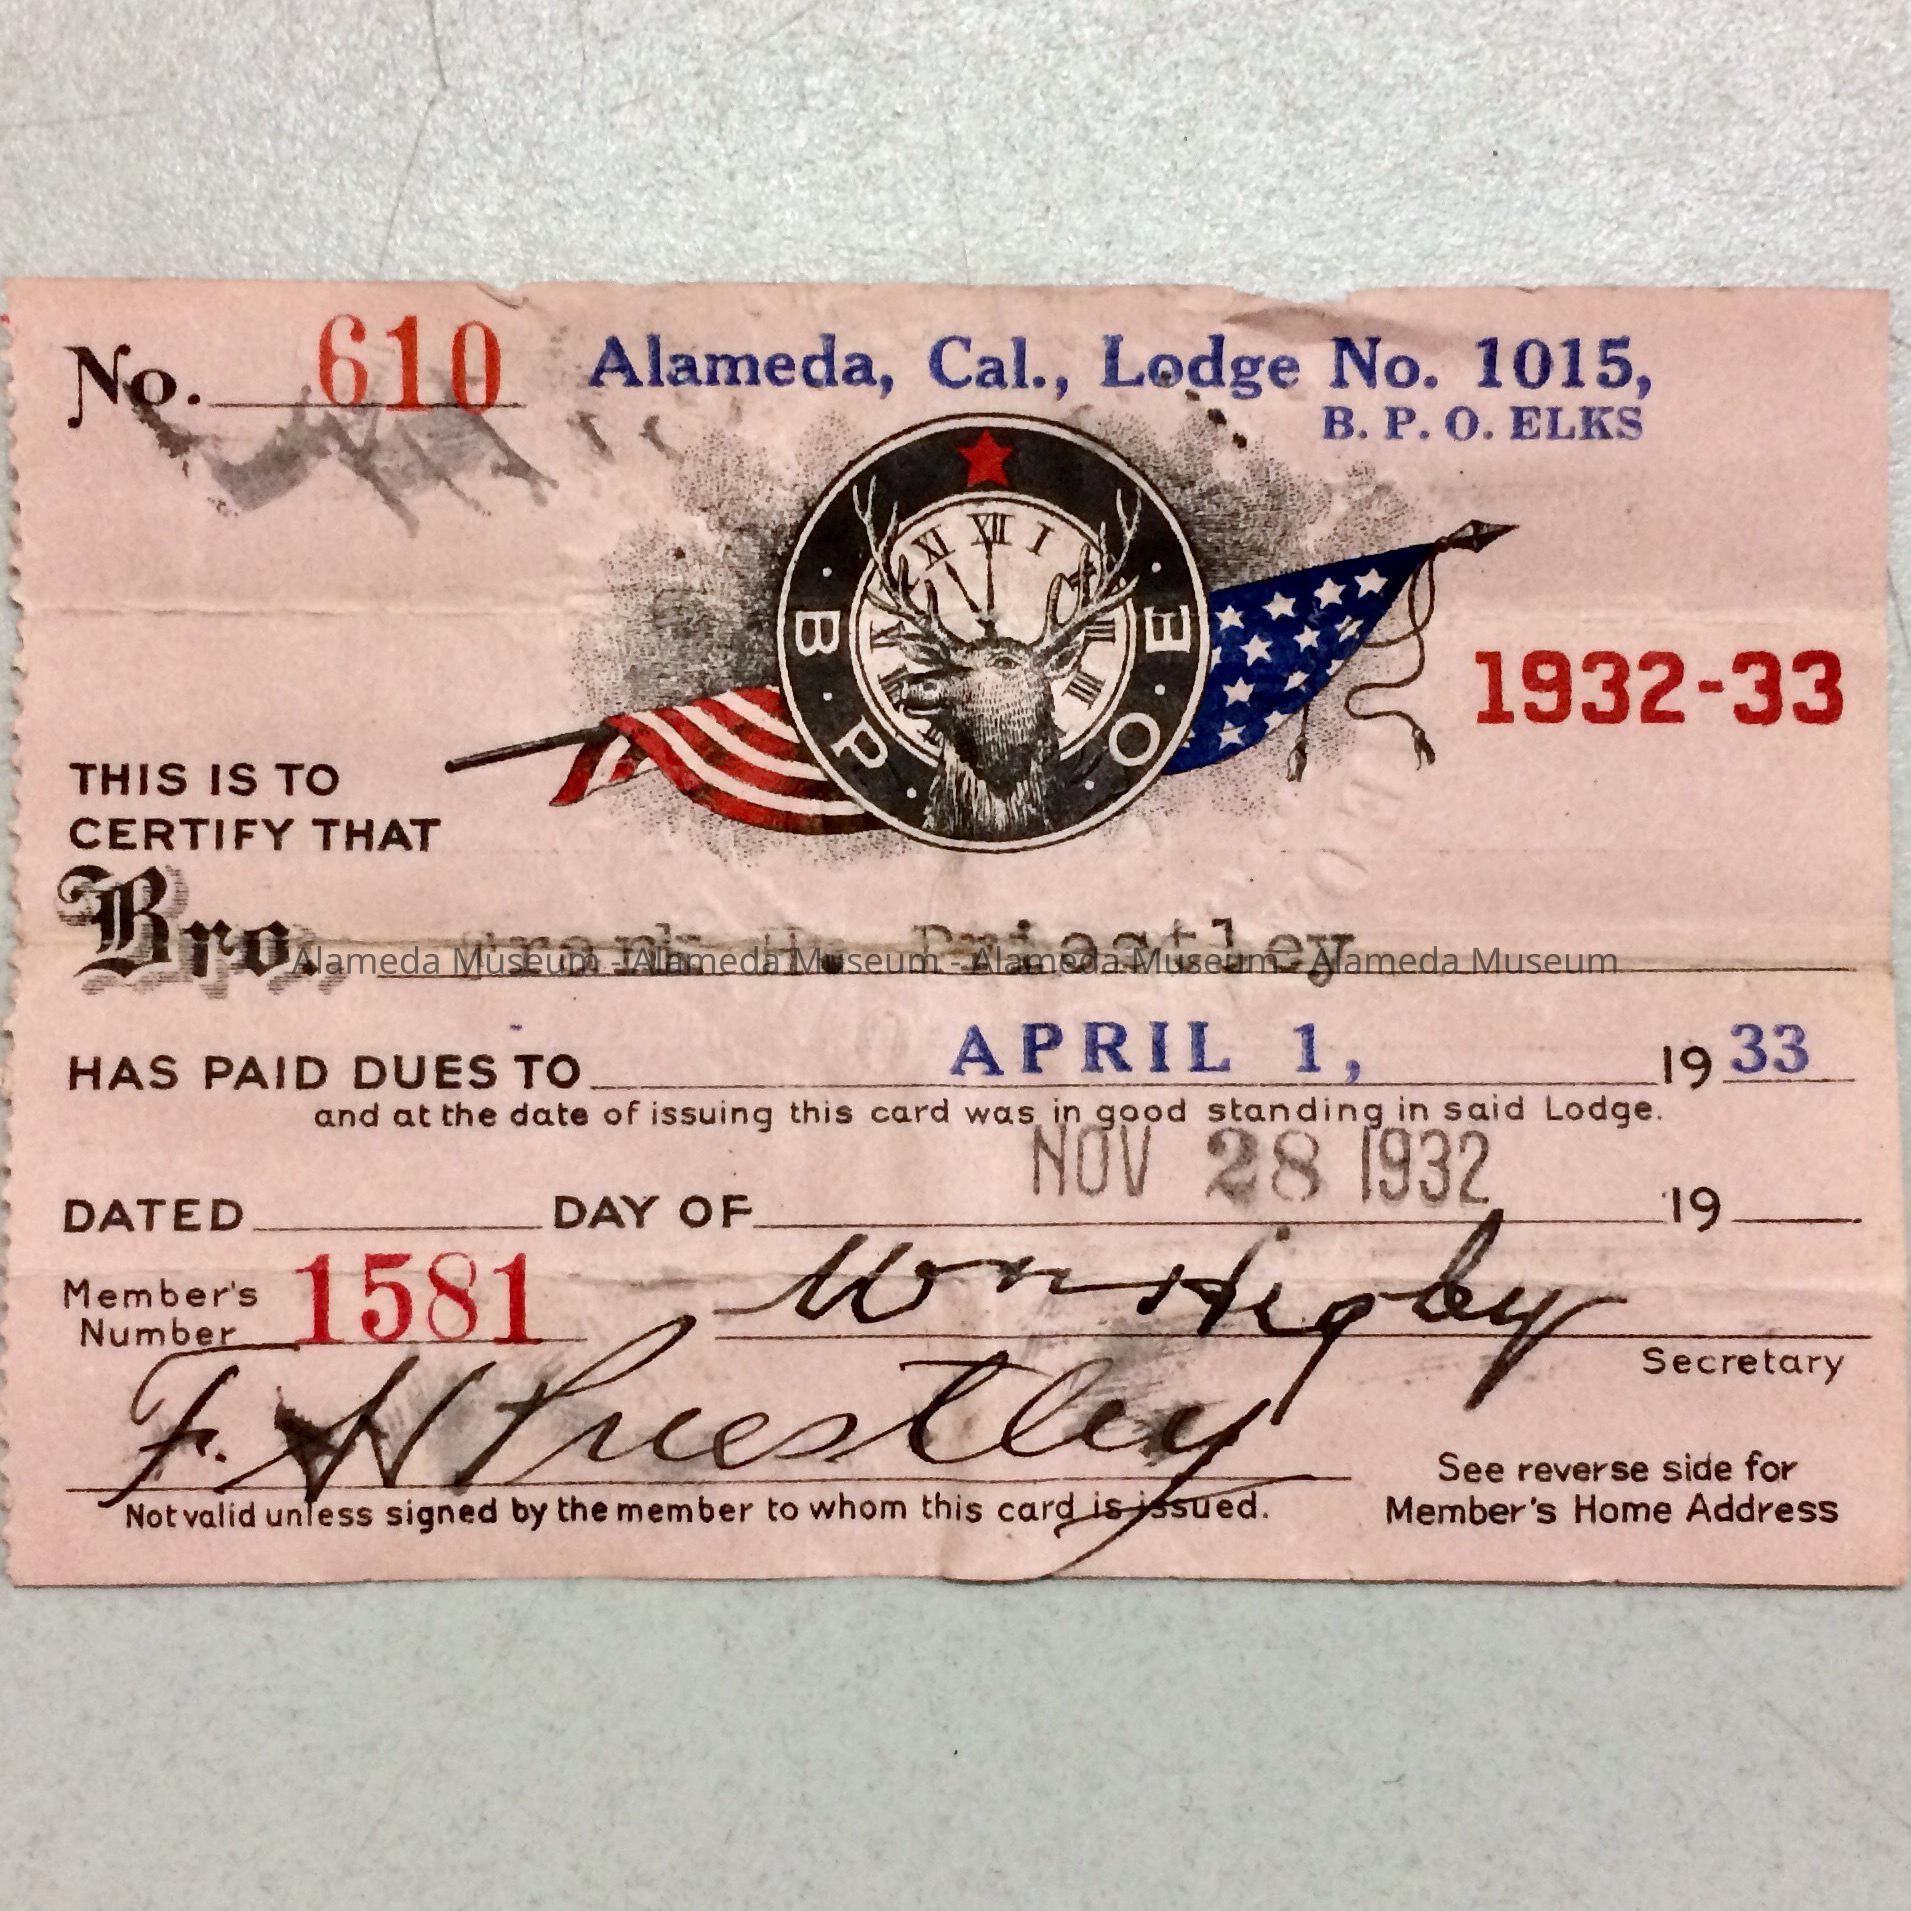 No. 610
Alameda, Cal., Lodge No. 1015,
B. P. O. ELKS
XI XII I
B · P · O · E
1932-33
THIS IS TO
CERTIFY THAT
Bro. Frank N. Priestley
Alameda Museum - Alameda Museum - Alameda Museum - Alameda Museum
HAS PAID DUES TO APRIL 1, 1933
and at the date of issuing this card was in good standing in said Lodge.
NOV 28 1932
DATED DAY OF 19
Member's
Number 1581
Wm Higby
Secretary
F. N Priestley
Not valid unless signed by the member to whom this card is issued.
See reverse side for
Member's Home Address